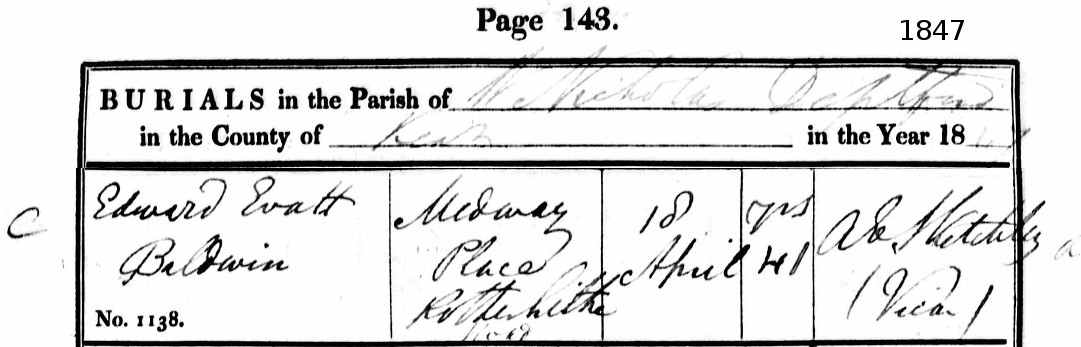 Page 143.
1847
BURIALS in the Parish of St Nicholas Deptford
in the County of Kent in the Year 18
C
Edward Evatt Medway 18 yrs
Baldwin Place April 41
Rotherhithe (Vicar)
No. 1138. Road